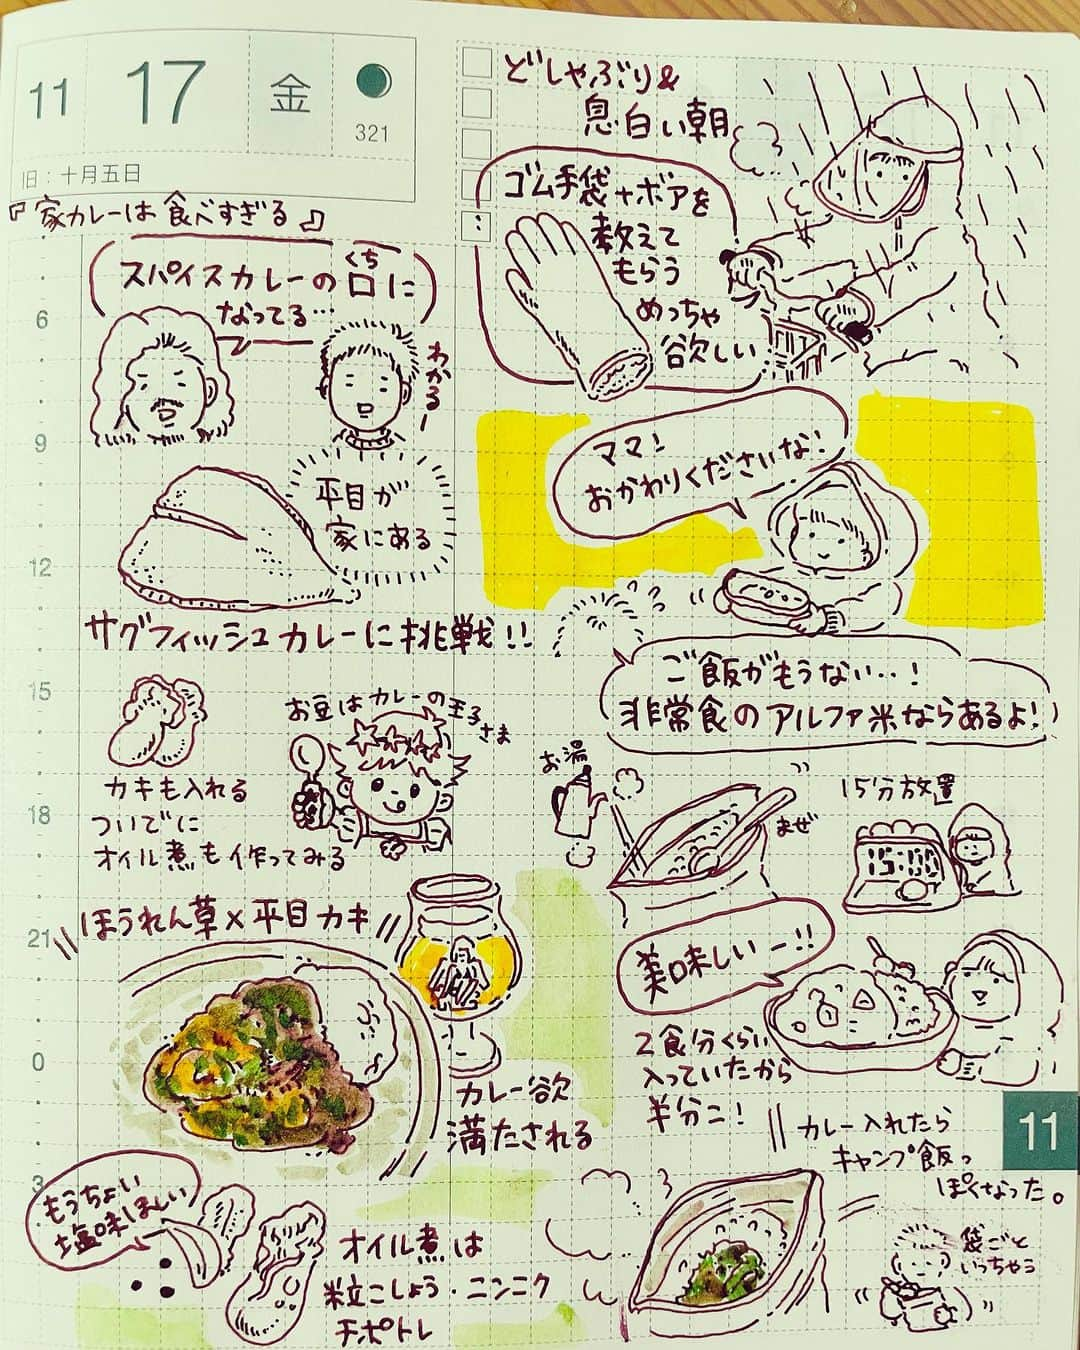 11
17
金
321
旧：十月五日
『家カレーは食べすぎる』
スパイスカレーの口に
くち
なってる…
わかるー
平目が
家にある
サグフィッシュカレーに挑戦!!
カキも入れる
ついでに
オイル煮も作ってみる
お豆はカレーの王子
さま
ほうれん草×平目カキ
カレー欲
満たされる
もうちょい
塩味ほしい
オイル煮は
粒こしょう・ニンニク
チポトレ
6
9
12
15
18
21
0
3
どしゃぶり&
息白い朝
ゴム手袋+ボアを
教えて
もらう
めっちゃ
欲しい
ママ!
おかわりくださいな!
ご飯がもうない…!
非常食のアルファ米ならあるよ!
お湯
まぜ
15分放置
15:00
美味しいー!!
2食分くらい
入っていたから
半分こ!
カレー入れたら
キャンプ飯っ
ぽくなった。
袋ごと
いっちゃう
11